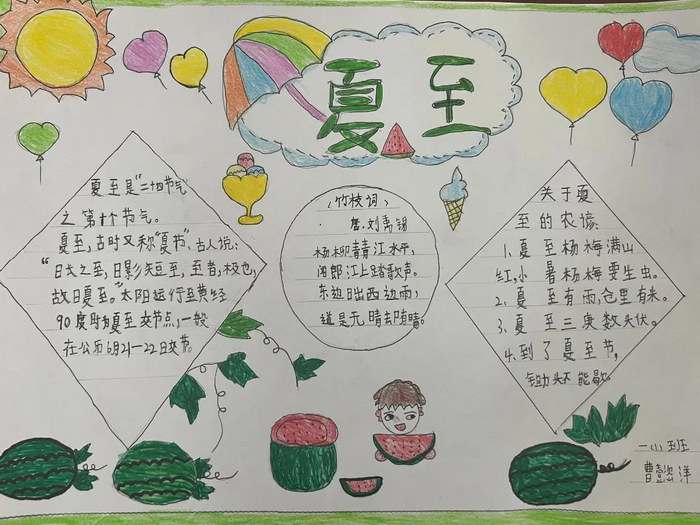 夏至
夏至是“二十四节气”
之第十个节气。
夏至，古时又称“夏节”、古人说：
“日长之至，日影短至，至者，极也，
故日夏至。”太阳运行至黄经
90度时为夏至交节点，一般
在公历6月21—22日交节。
《竹枝词》
唐．刘禹锡
杨柳青青江水平，
闻郎江上踏歌声。
东边日出西边雨，
道是无晴却有晴。
关于夏
至的农谚：
1、夏至杨梅满山
红，小暑杨梅要生虫。
2、夏至有雨，仓里有米。
3、夏至三庚数头伏。
4、到了夏至节，
锄头不能歇。
一小班
曹 洋